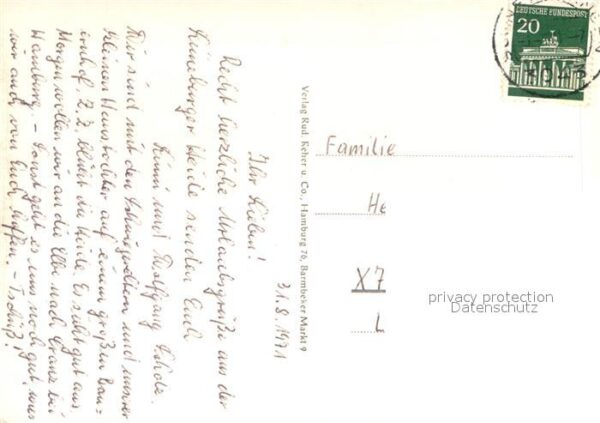 31.8.1971
Ihr Lieben!
Recht herzliche Urlaubsgrüße aus der
Lüneburger Heide senden Euch
und Wolfgang Scholz.
Wir sind mit den Schwiegereltern und unserer
kleinen Haustochter auf einem großen Bau=
ernhof. Z.Z. blüht die Heide. Es sieht gut aus.
Morgen wollen wir an die Elbe nach Cranz bei
Hamburg. – Sonst geht es uns noch gut, was
wir auch von Euch hoffen. – Tschüß!
Verlag Rud. Reher u. Co., Hamburg 76, Barmbeker Markt 9
Familie
He
X7
L
DEUTSCHE BUNDESPOST
20
privacy protection
Datenschutz